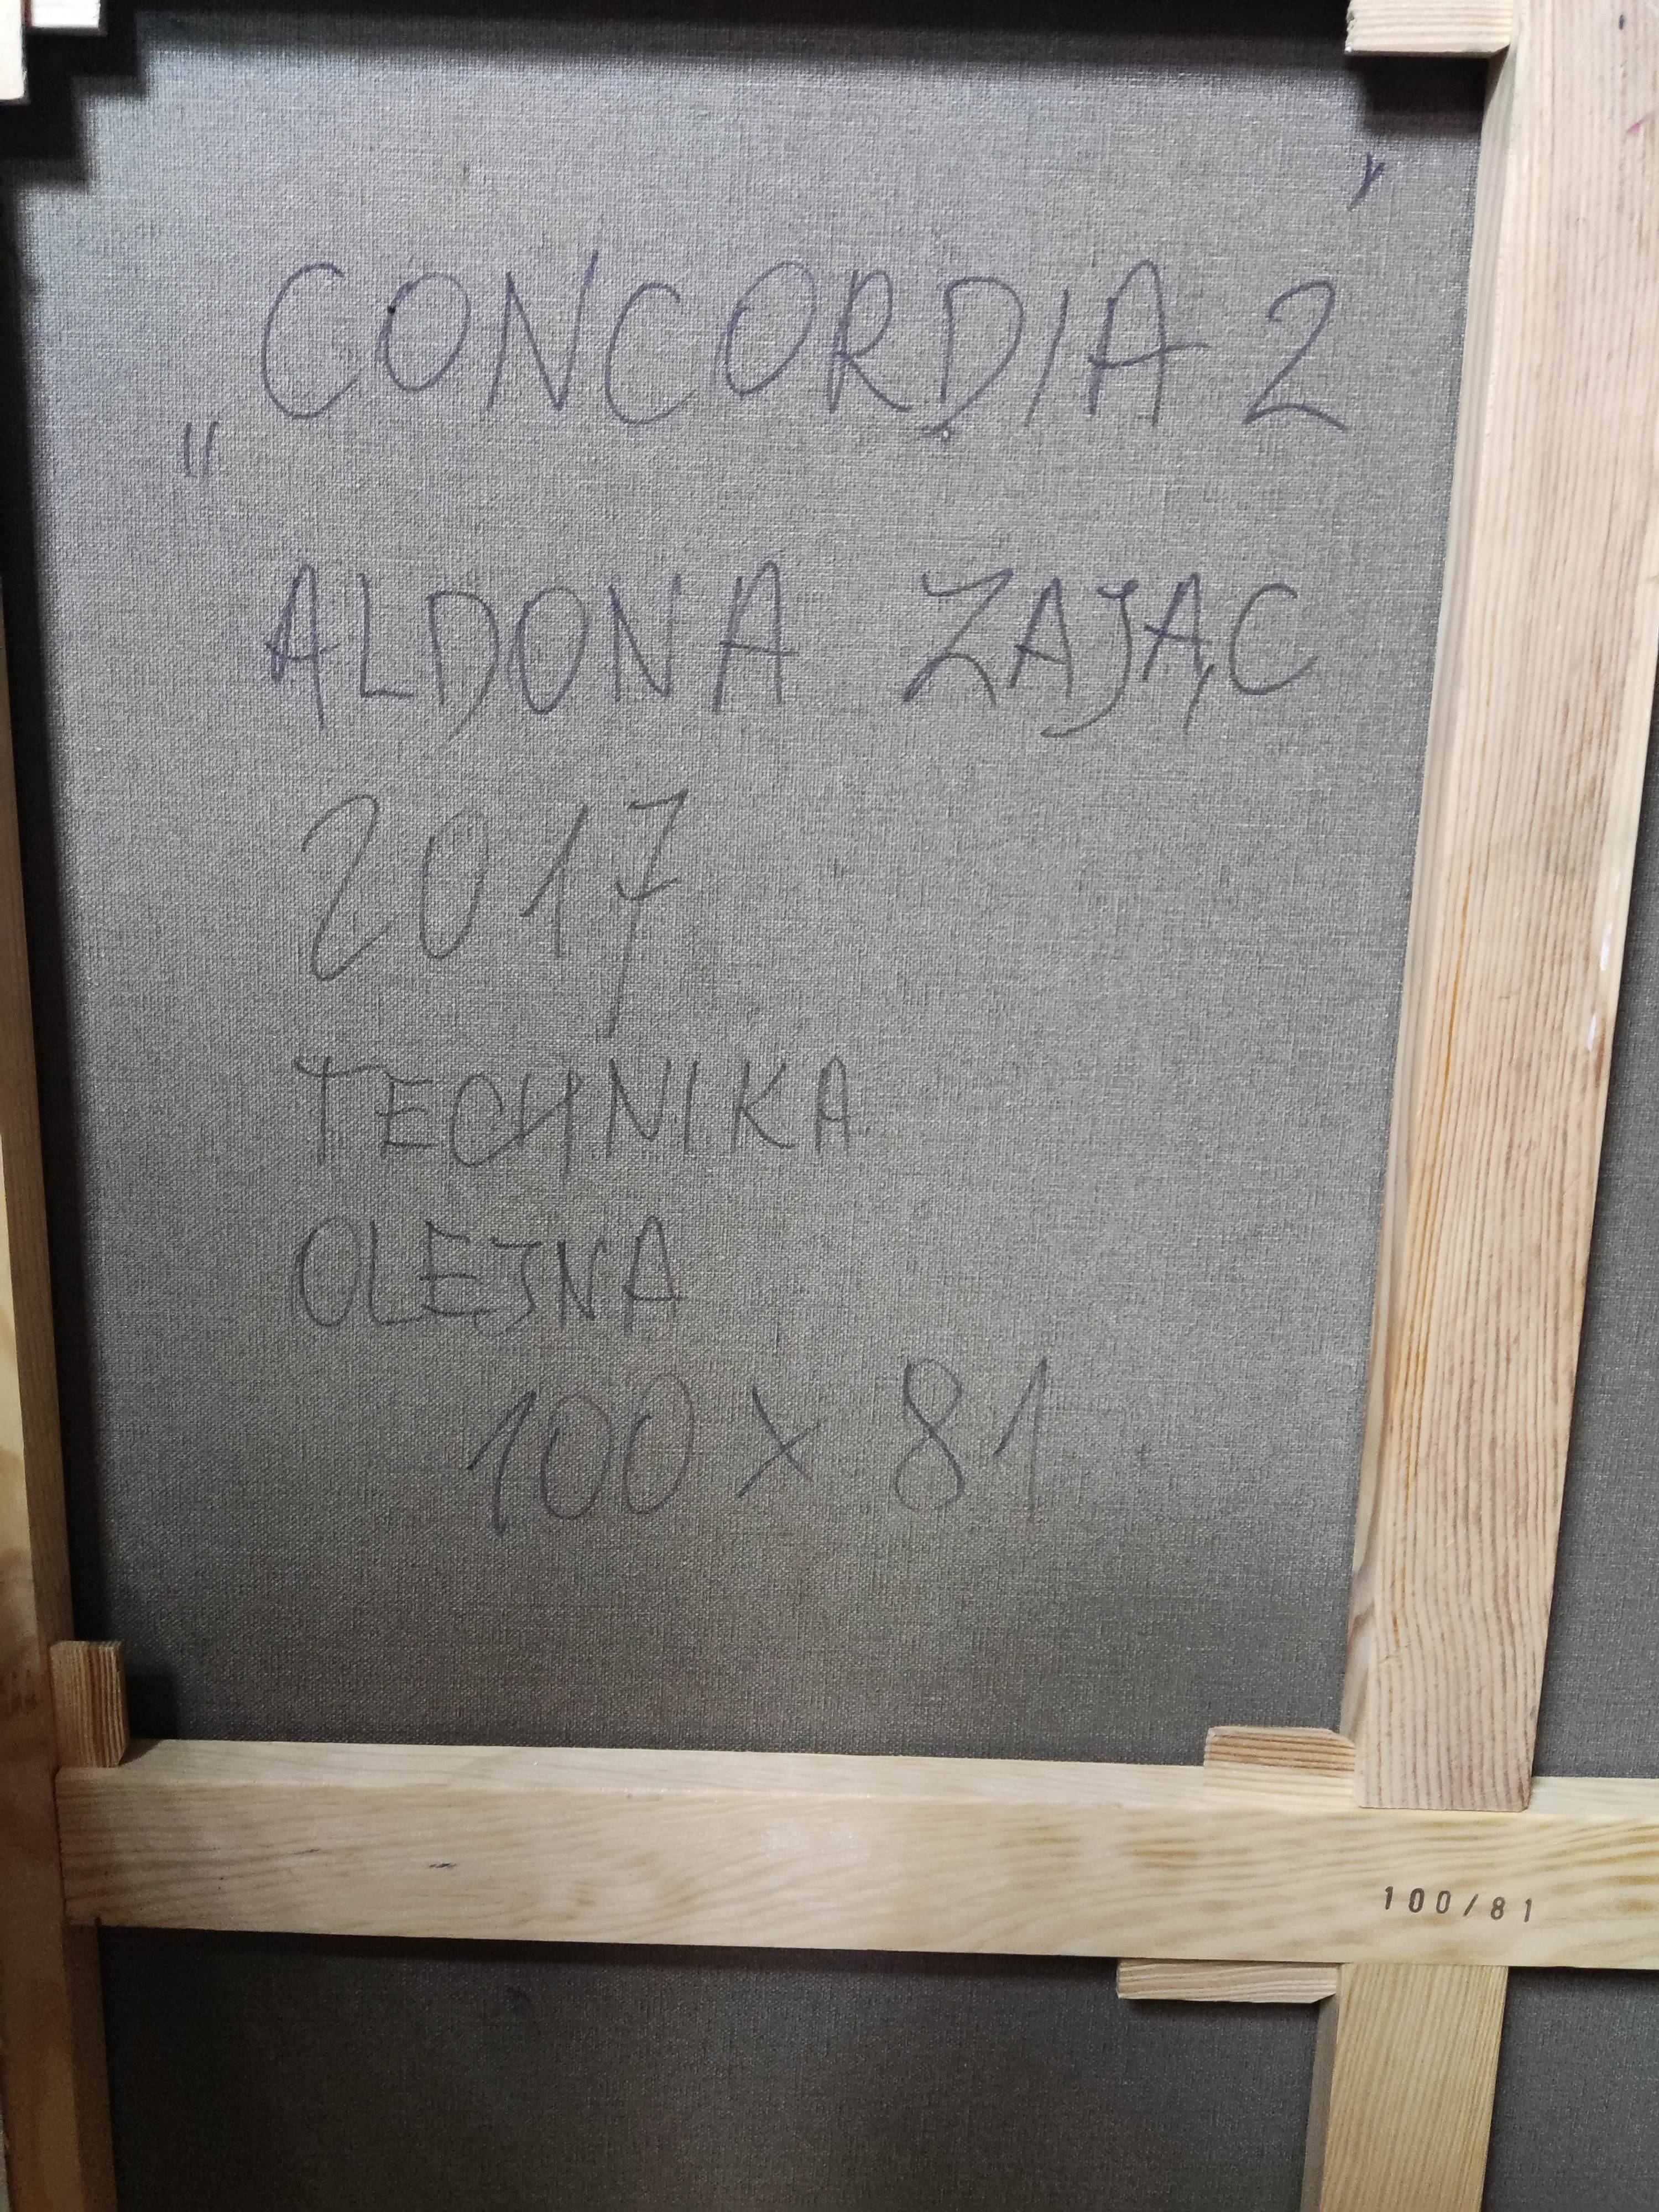 „CONCORDIA 2”
ALDONA ZAJĄC
2017
TECHNIKA
OLEJNA
100 x 81
100/81